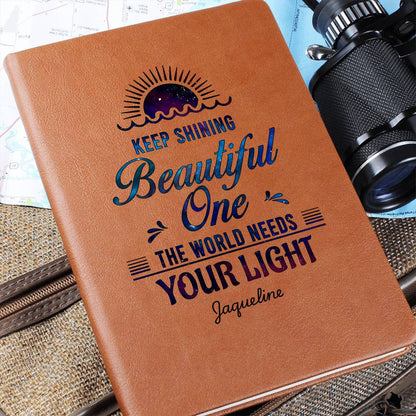 KEEP SHINING
Beautiful
One
THE WORLD NEEDS
YOUR LIGHT
Jaqueline